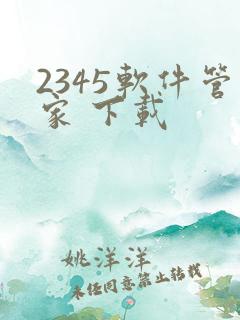 2345軟件管
家 下載
姚洋洋
未任同意禁止转载